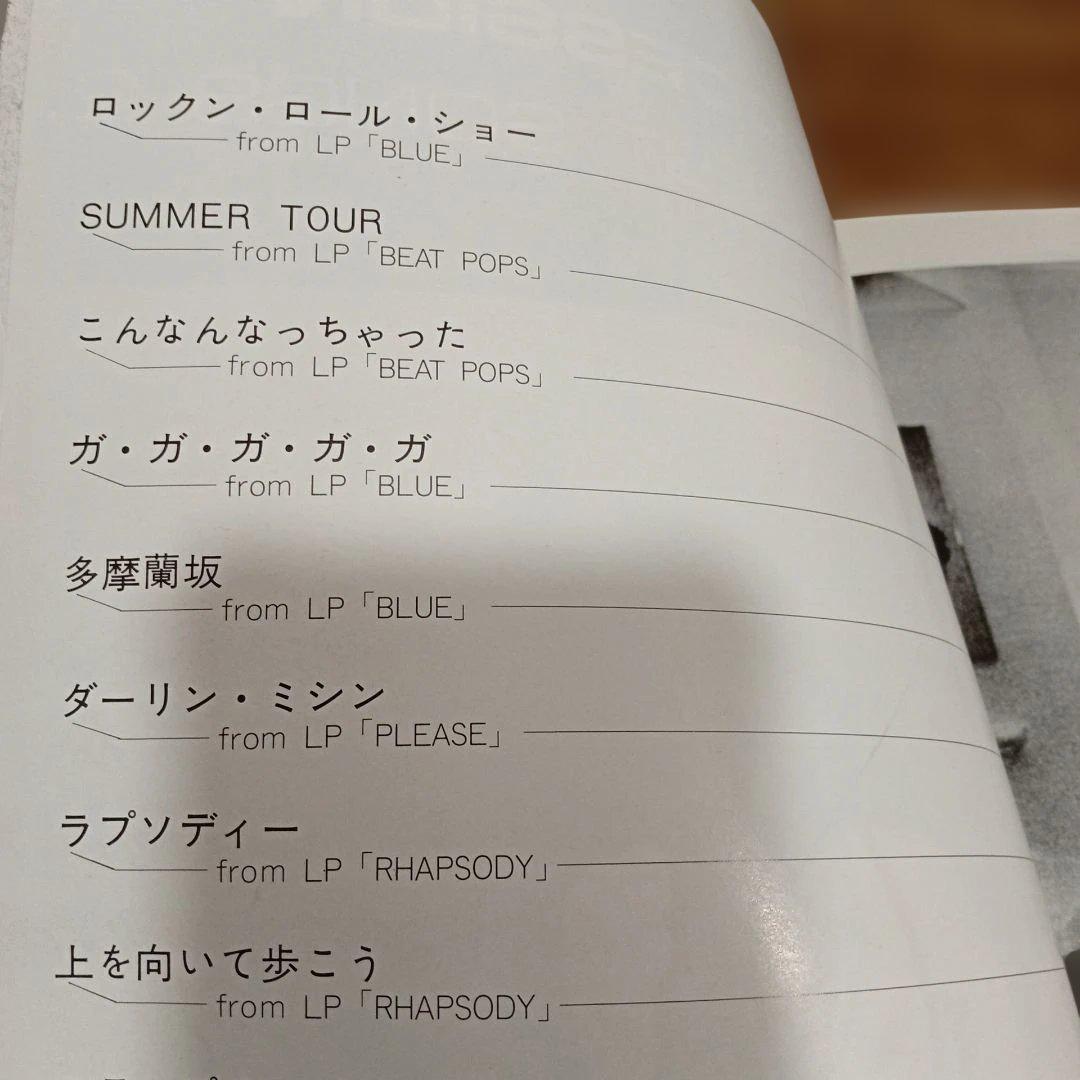 ロックン・ロール・ショー
from LP「BLUE」
SUMMER TOUR
from LP「BEAT POPS」
こんなんなっちゃった
from LP「BEAT POPS」
ガ・ガ・ガ・ガ・ガ
from LP「BLUE」
多摩蘭坂
from LP「BLUE」
ダーリン・ミシン
from LP「PLEASE」
ラプソディー
from LP「RHAPSODY」
上を向いて歩こう
from LP「RHAPSODY」